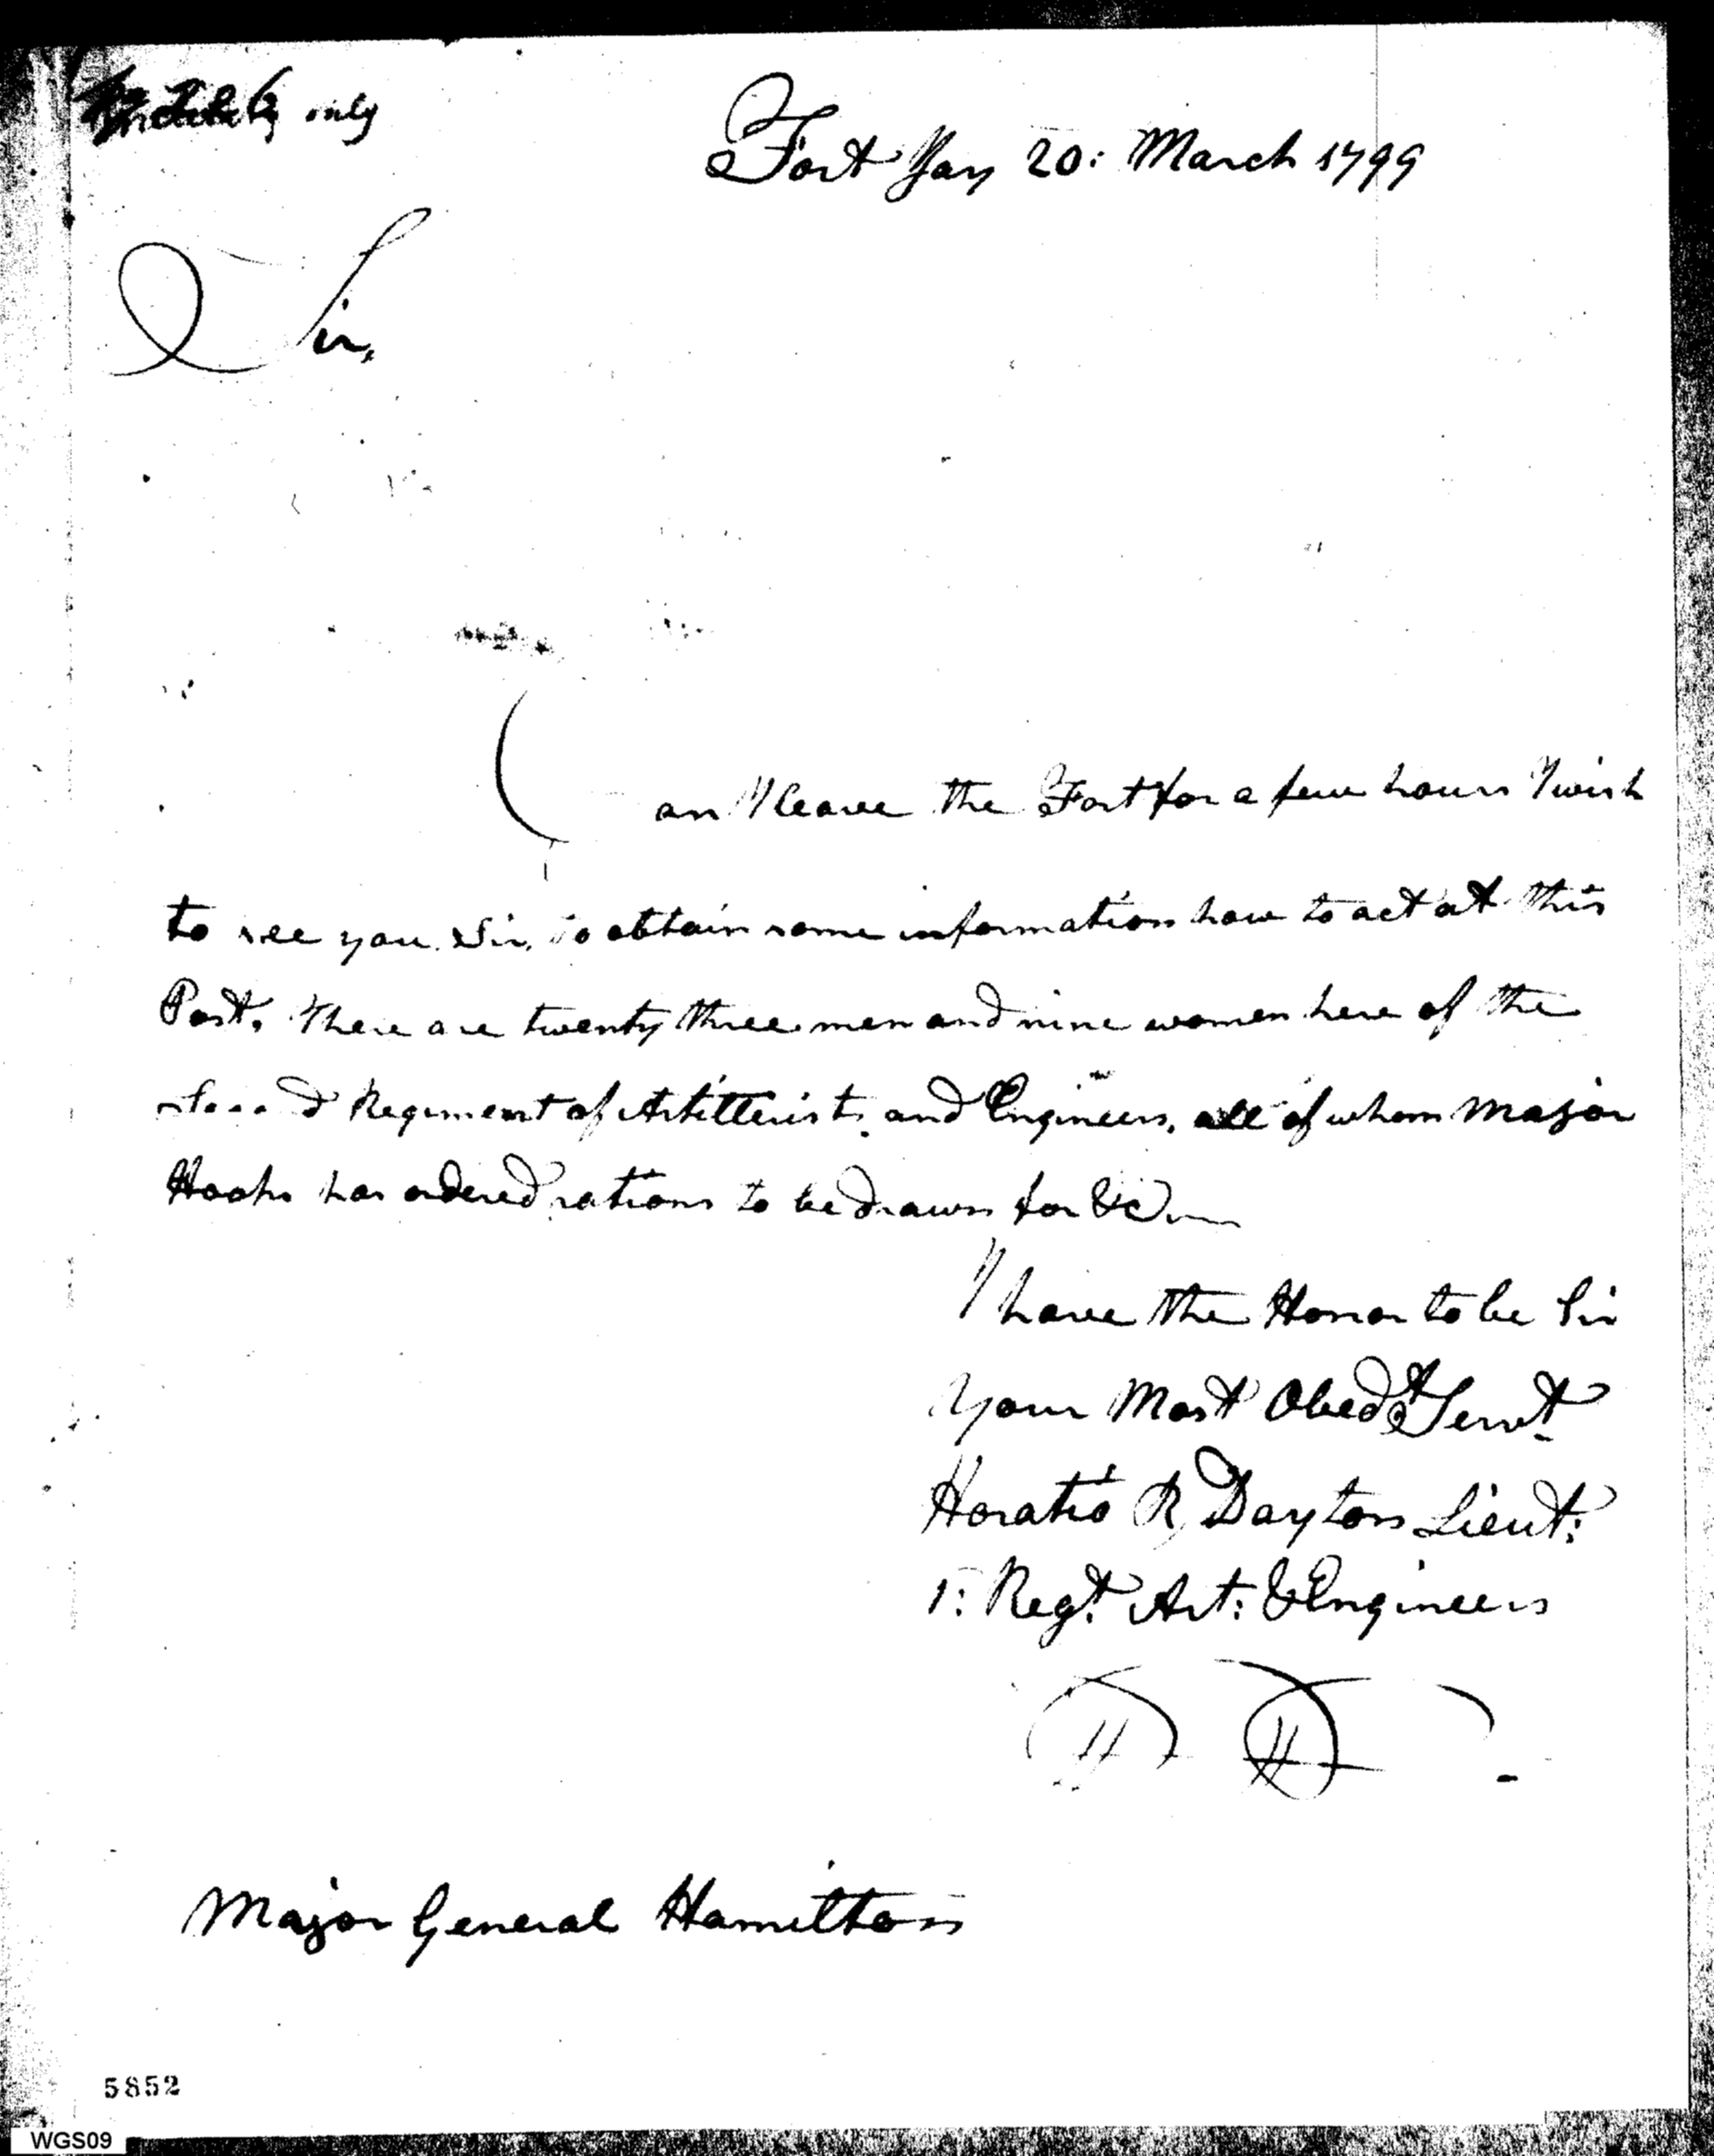 only
Fort Jay 20: March 1799
Sir,
Can I leave the Fort for a few hours I wish
to see you Sir, to obtain some information how to act at this
Post. There are twenty three men and nine women here of the
Second Regiment of Artillerists and Engineers, all of whom Major
Hoops has ordered rations to be drawn for &c
I have the Honor to be Sir
Your Most Obedt Servt
Horatio R Dayton Lieut:
1: Regt. Art: & Engineers
Major General Hamilton
5852
WGS09